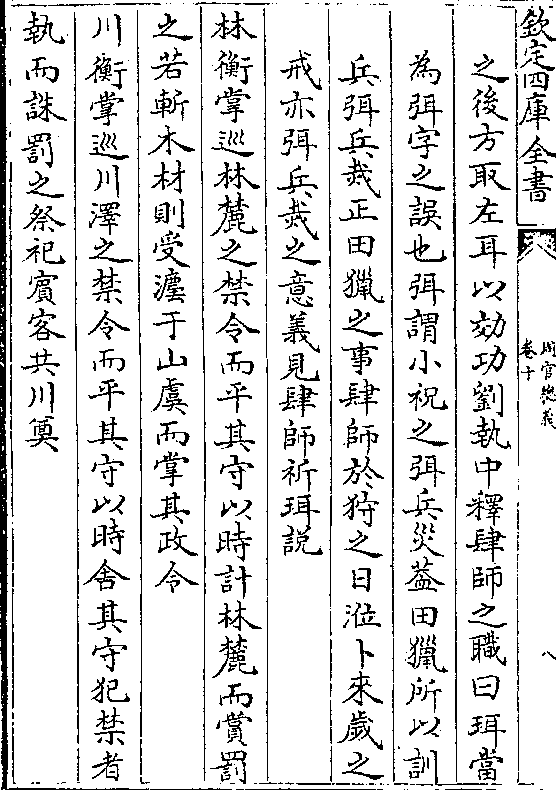 欽定四庫全書
周官總義
卷十
八
之後方取左耳以効功劉執中釋肆師之職曰珥當
為弭字之誤也弭謂小祝之弭兵災葢田獵所以訓
兵弭兵烖正田獵之事肆師於狩之日涖卜來歲之
戒亦弭兵烖之意義見肆師祈珥説
林衡掌巡林麓之禁令而平其守以時計林麓而賞罰
之若斬木材則受灋于山虞而掌其政令
川衡掌巡川澤之禁令而平其守以時舍其守犯禁者
執而誅罰之祭祀賓客共川奠